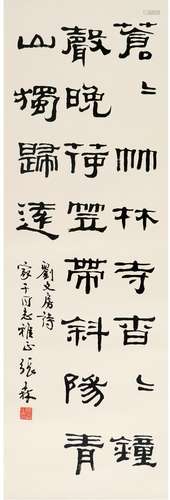 蒼〻竹林寺杳〻鐘
聲晚荷笠帶斜陽青
山獨歸遠
劉文房詩
同志雅正 張森